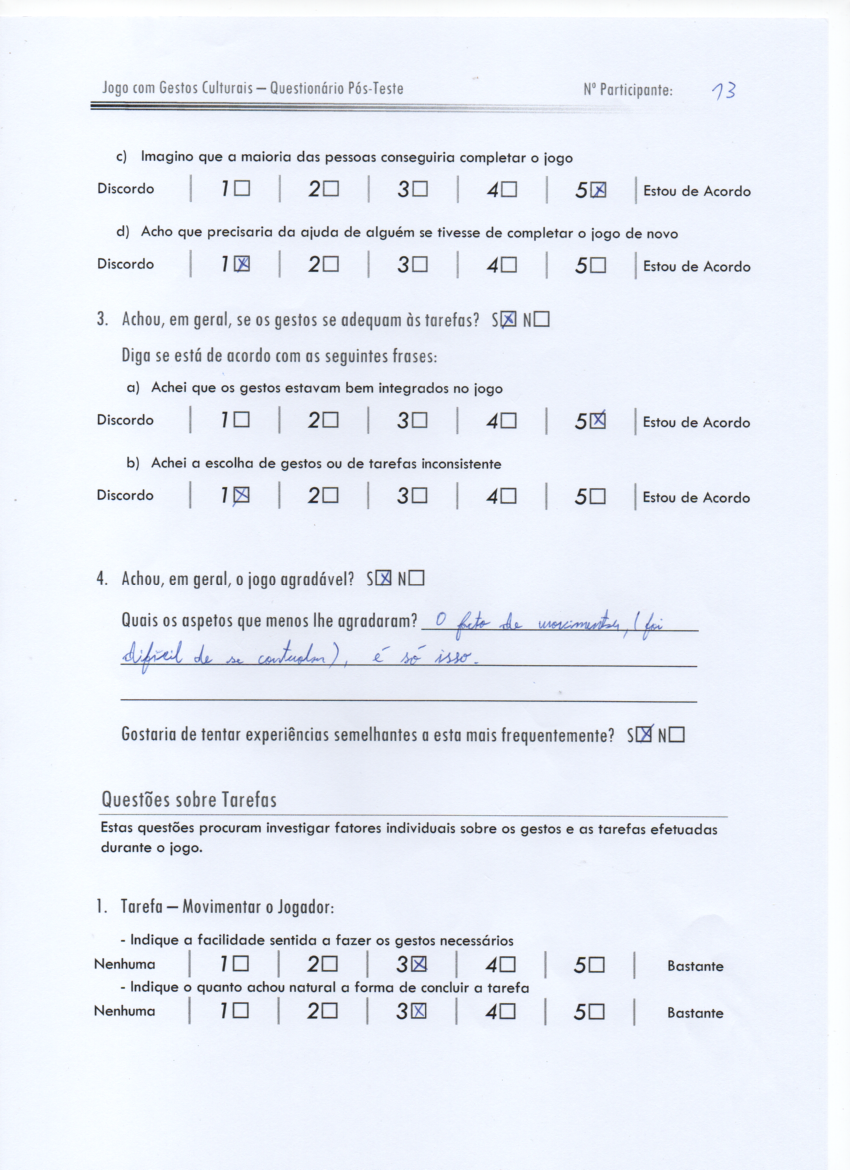 Jogo com Gestos Culturais – Questionário Pós-Teste Nº Participante: 13
c) Imagino que a maioria das pessoas conseguiria completar o jogo
Discordo | 1☐ | 2☐ | 3☐ | 4☐ | 5☒ | Estou de Acordo
d) Acho que precisaria da ajuda de alguém se tivesse de completar o jogo de novo
Discordo | 1☒ | 2☐ | 3☐ | 4☐ | 5☐ | Estou de Acordo
3. Achou, em geral, se os gestos se adequam às tarefas? S☒ N☐
Diga se está de acordo com as seguintes frases:
a) Achei que os gestos estavam bem integrados no jogo
Discordo | 1☐ | 2☐ | 3☐ | 4☐ | 5☒ | Estou de Acordo
b) Achei a escolha de gestos ou de tarefas inconsistente
Discordo | 1☒ | 2☐ | 3☐ | 4☐ | 5☐ | Estou de Acordo
4. Achou, em geral, o jogo agradável? S☒ N☐
Quais os aspetos que menos lhe agradaram? O fato de movimentar, (foi
difícil de se controlar), é só isso.
Gostaria de tentar experiências semelhantes a esta mais frequentemente? S☒ N☐
Questões sobre Tarefas
Estas questões procuram investigar fatores individuais sobre os gestos e as tarefas efetuadas
durante o jogo.
1. Tarefa – Movimentar o Jogador:
- Indique a facilidade sentida a fazer os gestos necessários
Nenhuma | 1☐ | 2☐ | 3☒ | 4☐ | 5☐ | Bastante
- Indique o quanto achou natural a forma de concluir a tarefa
Nenhuma | 1☐ | 2☐ | 3☒ | 4☐ | 5☐ | Bastante